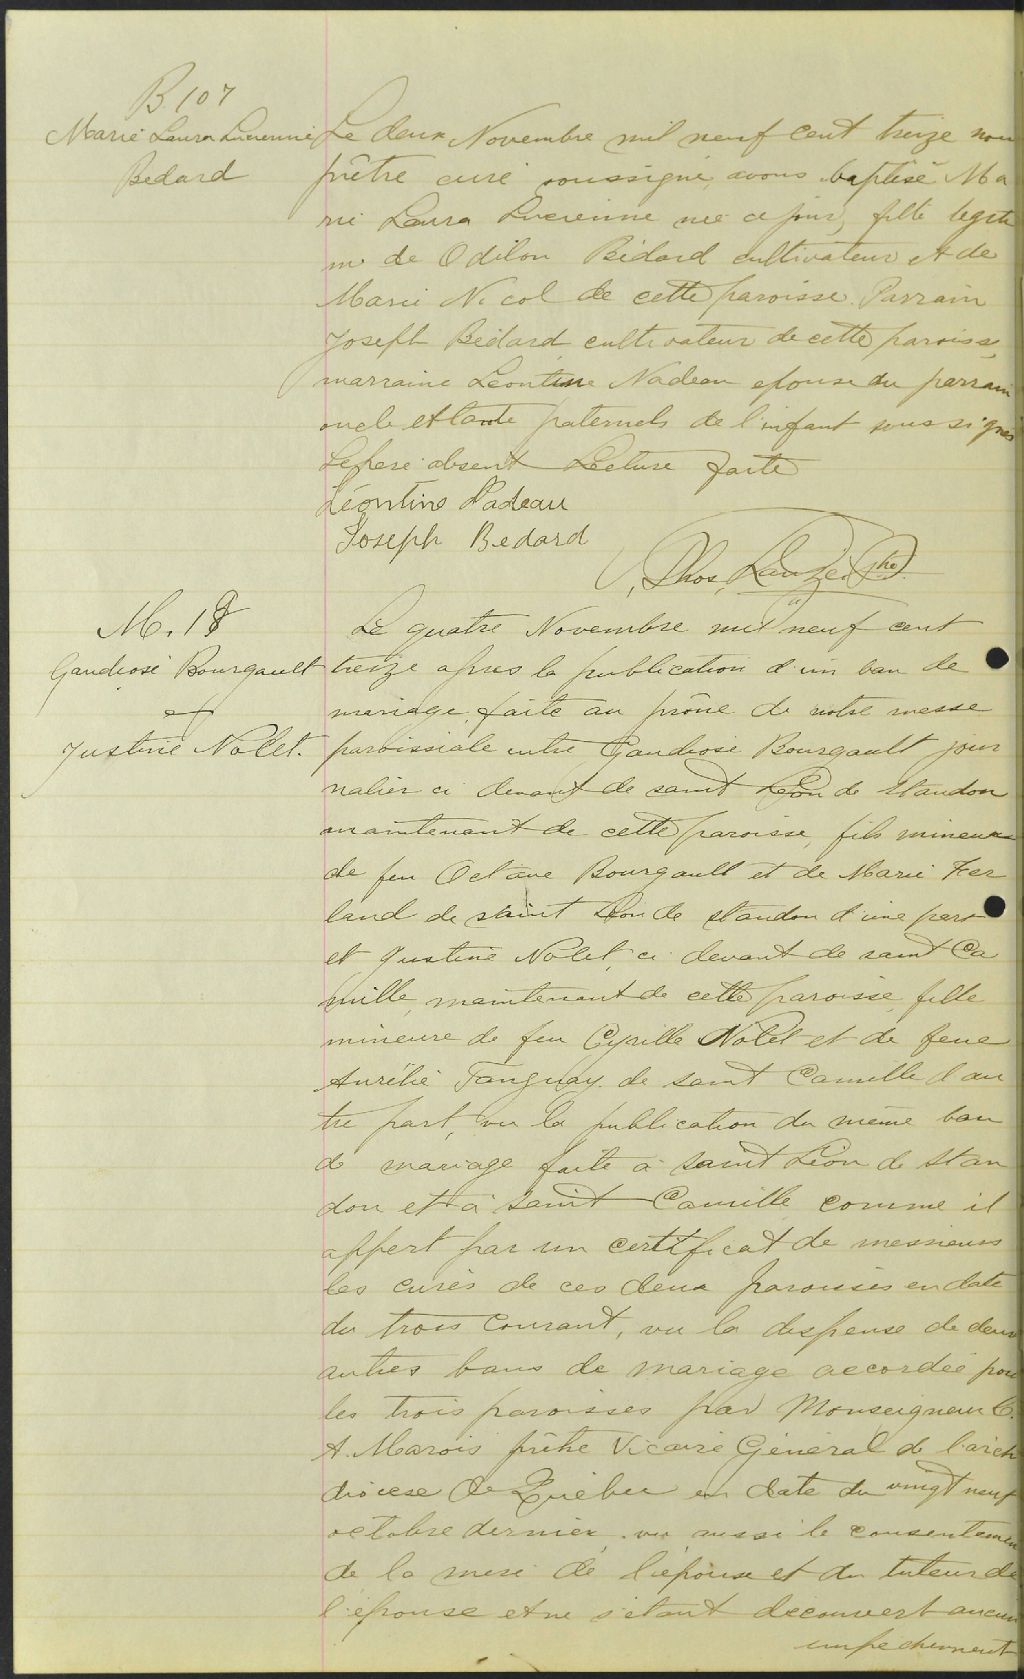 B. 107
Marie Laura Lucienne
Bedard
Le deux Novembre mil neuf cent treize nous
prêtre curé soussigné, avons baptisé Ma
rie Laura Lucienne née ce jour, fille legiti
me de Odilon Bédard cultivateur et de
Marie Nicol de cette paroisse. Parrain
Joseph Bédard cultivateur de cette paroisse,
marraine Léontine Nadeau epouse du parrain
oncle et tante paternels de l'enfant soussignés
Le pere absent Lecture faite
Léontine Nadeau
Joseph Bedard
Thos. Lauzé Ptre
M. 18
Gaudiose Bourgault
et
Justine Nolet.
Le quatre Novembre mil neuf cent
treize apres la publication d'un ban de
mariage, faite au prône de notre messe
paroissiale entre Gaudiose Bourgault jour
nalier ci devant de saint Léon de Standon
maintenant de cette paroisse, fils mineur
de feu Octave Bourgault et de Marie Fer
land de saint Léon de standon d'une part
et Justine Nolet, ci devant de saint Ca
mille, maintenant de cette paroisse, fille
mineure de feu Cyrille Nolet et de feue
Aurélie Tanguay de saint Camille d'au
tre part, vu la publication du même ban
de mariage faite à saint Léon de Stan
don et à saint Camille comme il
appert par un certificat de messieurs
les curés de ces deux paroisses en date
du trois courant, vu la dispense de deux
autres bans de mariage accordée pour
les trois paroisses par Monseigneur C.
A. Marois prêtre Vicaire Général de l'arch
diocese de Québec en date du vingt neuf
octobre dernier, vu aussi le consentement
de la mere de l'époux et du tuteur de
l'épouse et ne s'étant découvert aucun
empêchement